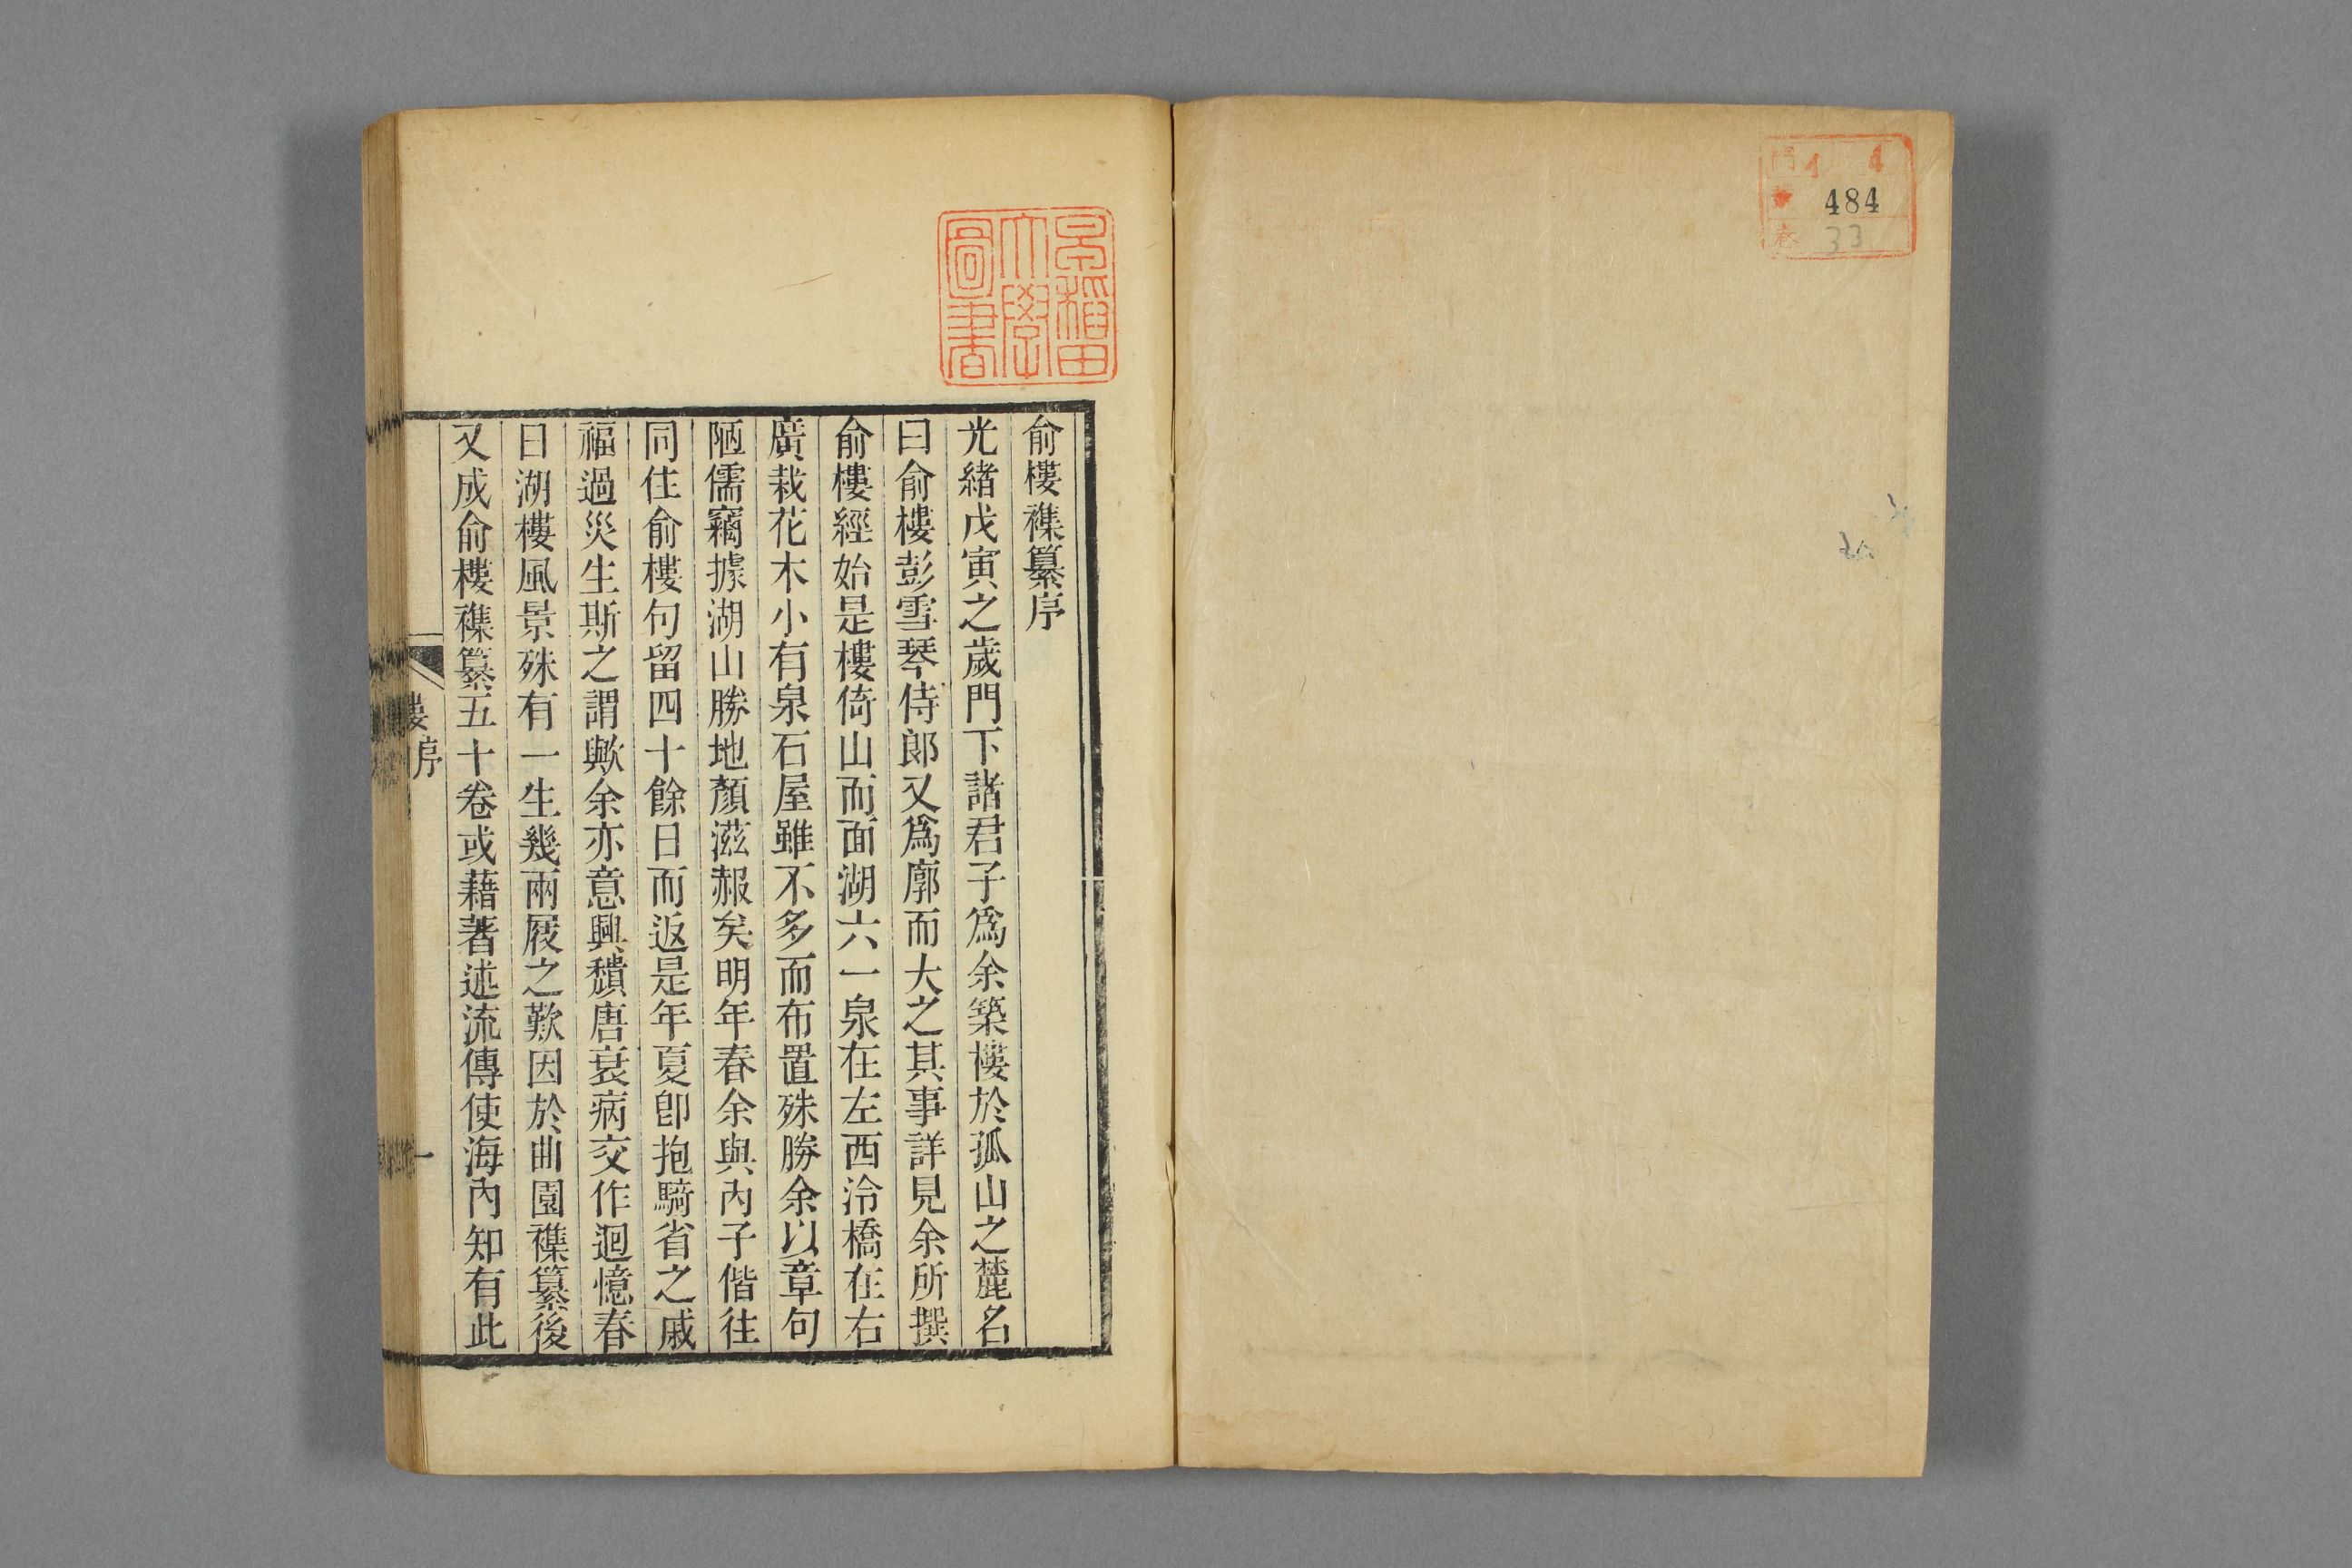 門 4 4
號 484
卷 33
早稻田
大學
圖書
俞樓襍纂序
光緒戊寅之歲門下諸君子爲余築樓於孤山之麓名
曰俞樓彭雪琴侍郎又爲廓而大之其事詳見余所撰
俞樓經始是樓倚山而面湖六一泉在左西泠橋在右
廣栽花木小有泉石屋雖不多而布置殊勝余以章句
陋儒竊據湖山勝地顏滋赧矣明年春余與內子偕往
同住俞樓句留四十餘日而返是年夏卽抱騎省之戚
福過災生斯之謂歟余亦意興穨唐衰病交作迴憶春
日湖樓風景殊有一生幾兩屐之歎因於曲園襍纂後
又成俞樓襍纂五十卷或藉著述流傳使海內知有此
樓序
一